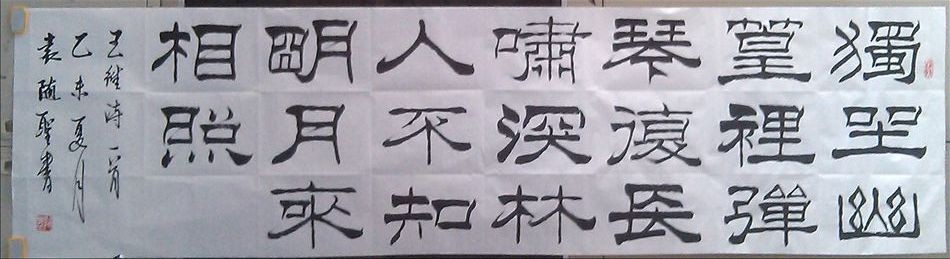 獨坐幽
篁裡彈
琴復長
嘯深林
人不知
明月來
相照
王維诗一首
乙未夏月
袁随聖書